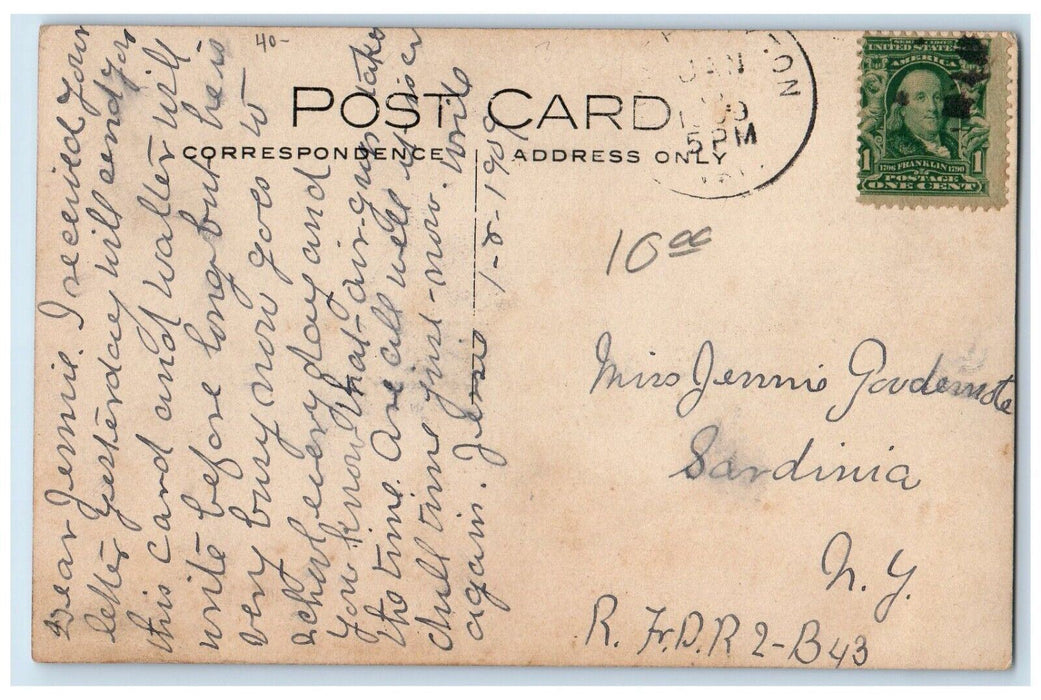 40-
POST CARD
CORRESPONDENCE
ADDRESS ONLY
JAN
5 PM
SERIES 1902
UNITED STATES
AMERICA
1706 FRANKLIN 1790
1 POSTAGE 1
ONE CENT
10.00
Miss Jennie
Sardinia
N. Y.
R. F. D. R 2 - B 43
Dear Jennie. I received your
letter yesterday will send you
this card and Walter will
write before long but he is
very busy now goes to
school every day and
You know that air-gun takes
the time. Are all well since
dull time just-now. Write
again. Jessie 1-8-1909